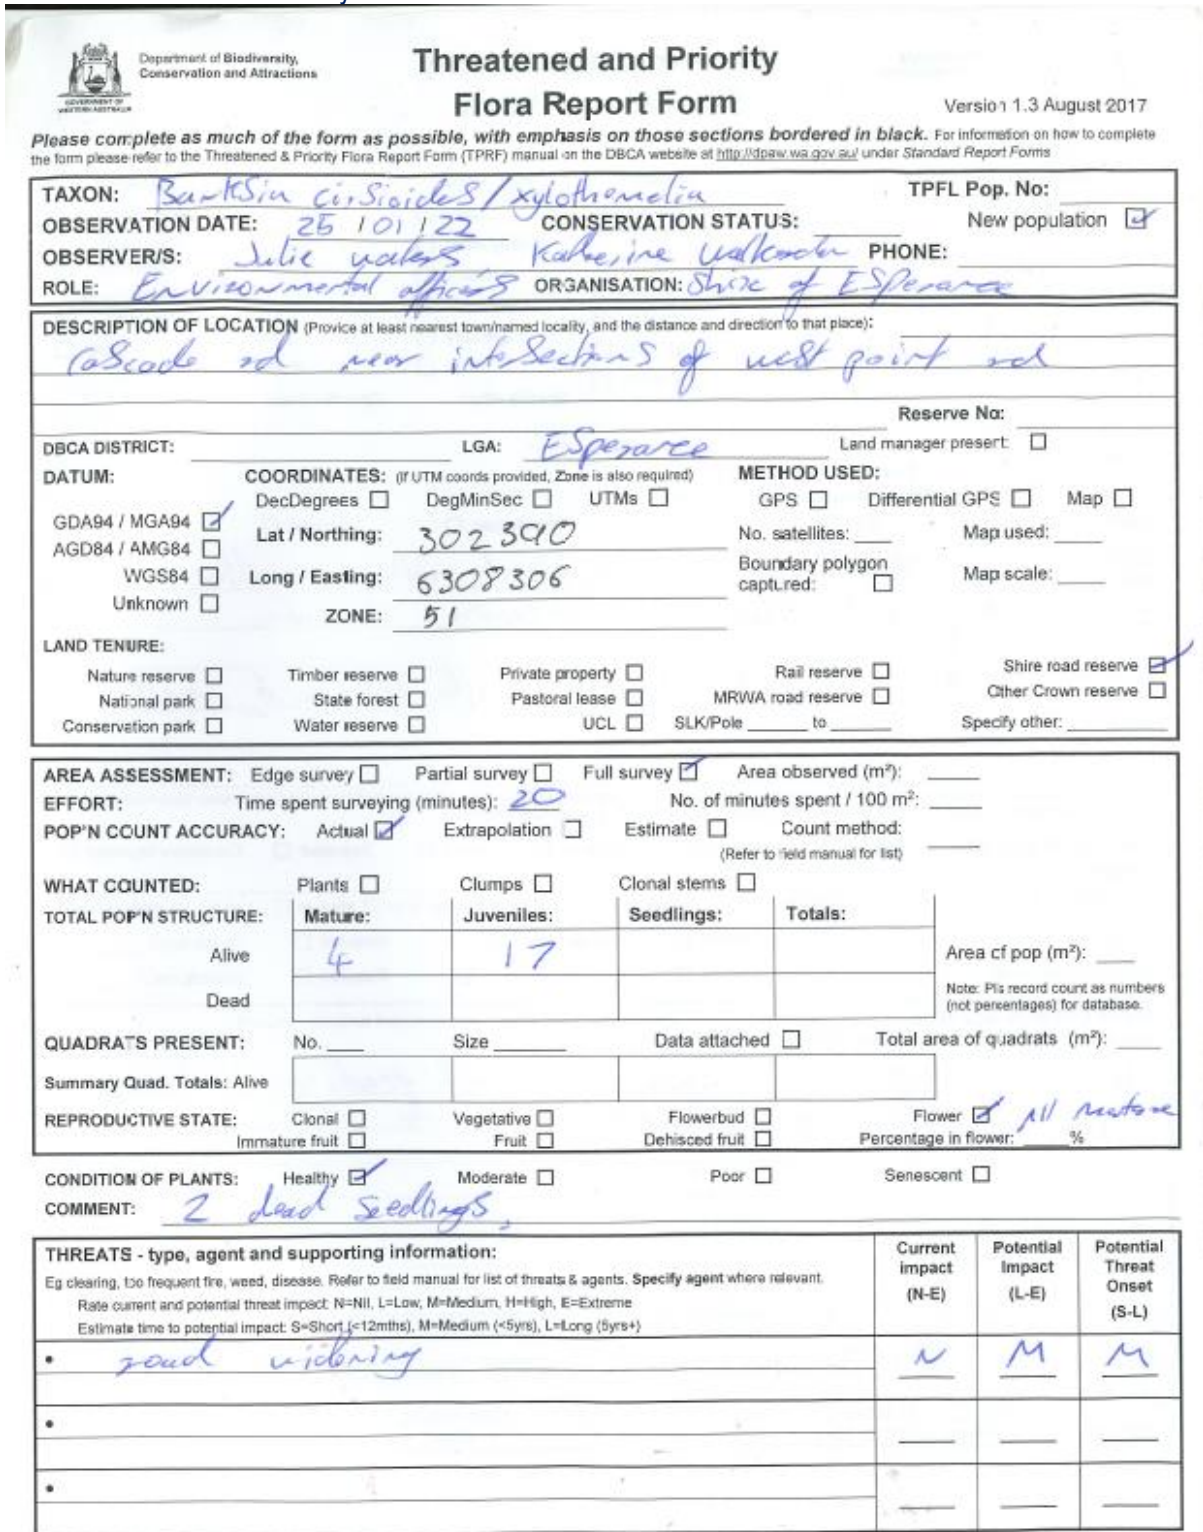 Department of Biodiversity,
Conservation and Attractions
GOVERNMENT OF
WESTERN AUSTRALIA
Threatened and Priority
Flora Report Form
Version 1.3 August 2017
Please complete as much of the form as possible, with emphasis on those sections bordered in black. For information on how to complete
the form please refer to the Threatened & Priority Flora Report Form (TPRF) manual on the DBCA website at http://dpaw.wa.gov.au/ under Standard Report Forms
TAXON: Banksia cirsioides / xylothemelia TPFL Pop. No:
OBSERVATION DATE: 25 / 01 / 22 CONSERVATION STATUS: New population
OBSERVER/S: Julie waters Katherine PHONE:
ROLE: Environmental officers ORGANISATION: Shire of ESperance
DESCRIPTION OF LOCATION (Provide at least nearest town/named locality, and the distance and direction to that place):
CaScade rd near intersections of west point rd
Reserve No:
DBCA DISTRICT: LGA: ESperance Land manager present:
DATUM: COORDINATES: (If UTM coords provided, Zone is also required) METHOD USED:
DecDegrees DegMinSec UTMs GPS Differential GPS Map
GDA94 / MGA94 Lat / Northing: 302390 No. satellites: Map used:
AGD84 / AMG84
WGS84 Long / Easting: 6308306 Boundary polygon captured: Map scale:
Unknown ZONE: 51
LAND TENURE:
Nature reserve Timber reserve Private property Rail reserve Shire road reserve
National park State forest Pastoral lease MRWA road reserve Other Crown reserve
Conservation park Water reserve UCL SLK/Pole to Specify other:
AREA ASSESSMENT: Edge survey Partial survey Full survey Area observed (m²):
EFFORT: Time spent surveying (minutes): 20 No. of minutes spent / 100 m²:
POP'N COUNT ACCURACY: Actual Extrapolation Estimate Count method:
(Refer to field manual for list)
WHAT COUNTED: Plants Clumps Clonal stems
TOTAL POP'N STRUCTURE: Mature: Juveniles: Seedlings: Totals:
Alive 4 17 Area of pop (m²):
Dead Note: Pls record count as numbers
(not percentages) for database.
QUADRATS PRESENT: No. Size Data attached Total area of quadrats (m²):
Summary Quad. Totals: Alive
REPRODUCTIVE STATE: Clonal Vegetative Flowerbud Flower All mature
Immature fruit Fruit Dehisced fruit Percentage in flower: %
CONDITION OF PLANTS: Healthy Moderate Poor Senescent
COMMENT: 2 dead Seedlings,
THREATS - type, agent and supporting information: Current impact (N-E) Potential Impact (L-E) Potential Threat Onset (S-L)
Eg clearing, too frequent fire, weed, disease. Refer to field manual for list of threats & agents. Specify agent where relevant.
Rate current and potential threat impact: N=Nil, L=Low, M=Medium, H=High, E=Extreme
Estimate time to potential impact: S=Short (<12mths), M=Medium (<5yrs), L=Long (5yrs+)
• road widening N M M
•
•